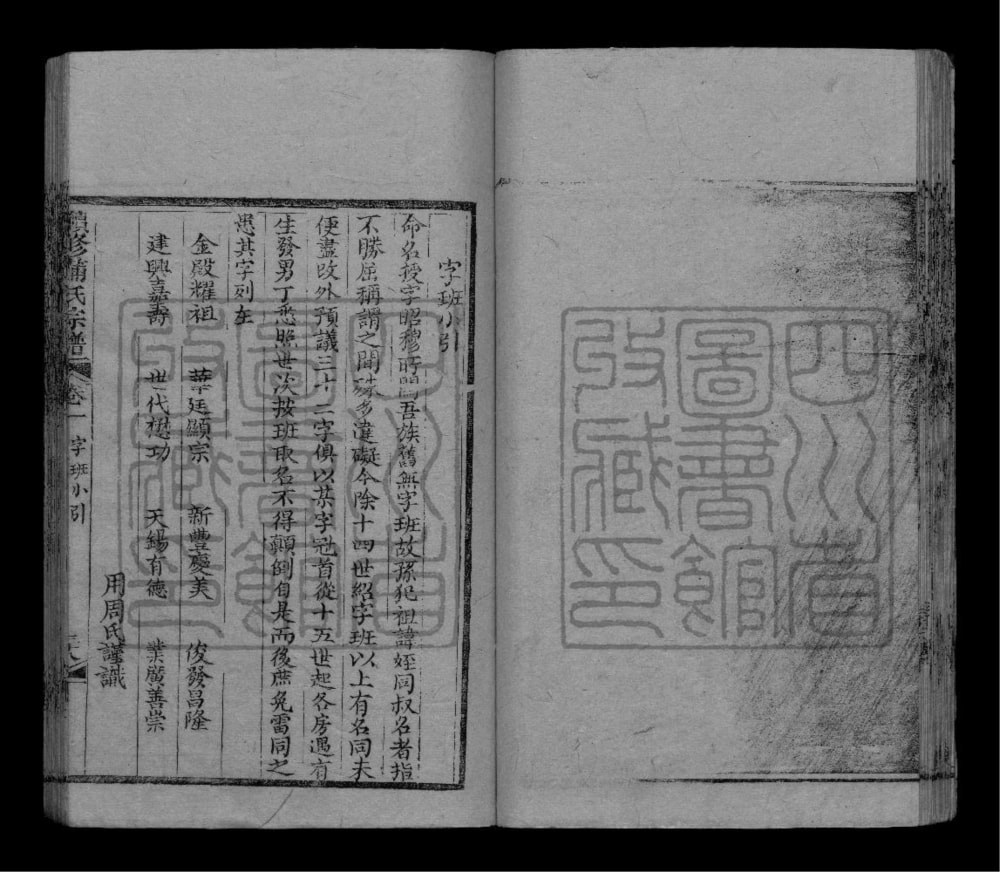 字班小引
命名授字昭穆所關吾族舊無字班故孫犯祖諱姪同叔名者指
不勝屈稱謂之間殊多違礙今除十四世紹字班以上有名同未
便盡改外預議三十二字俱以某字冠首從十五世起各房遇有
生發男丁悉照世次按班取名不得顛倒自是而後庶免雷同之
患其字列左
金殿耀祖 華廷顯宗 新豐慶美 俊發昌隆
建興嘉壽 世代懋功 天錫有德 業廣善崇
用周氏謹識
續修蒲氏宗譜 卷一 字班小引
四川省
圖書館
收藏印